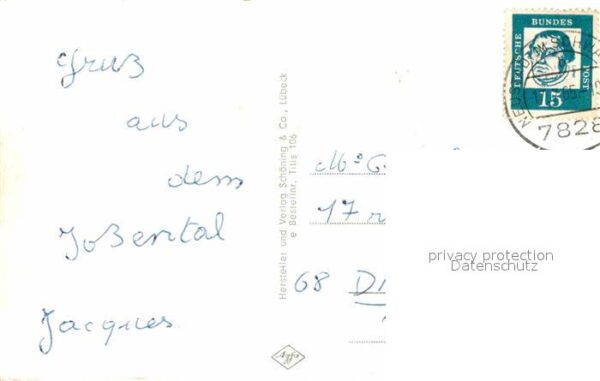 Gruß
aus
dem
Joßental
Jacques
Hersteller und Verlag Schöning & Co., Lübeck
e Bestellnr. Titis 106
DEUTSCHE
BUNDES
POST
15
7828
17
68
privacy protection
Datenschutz